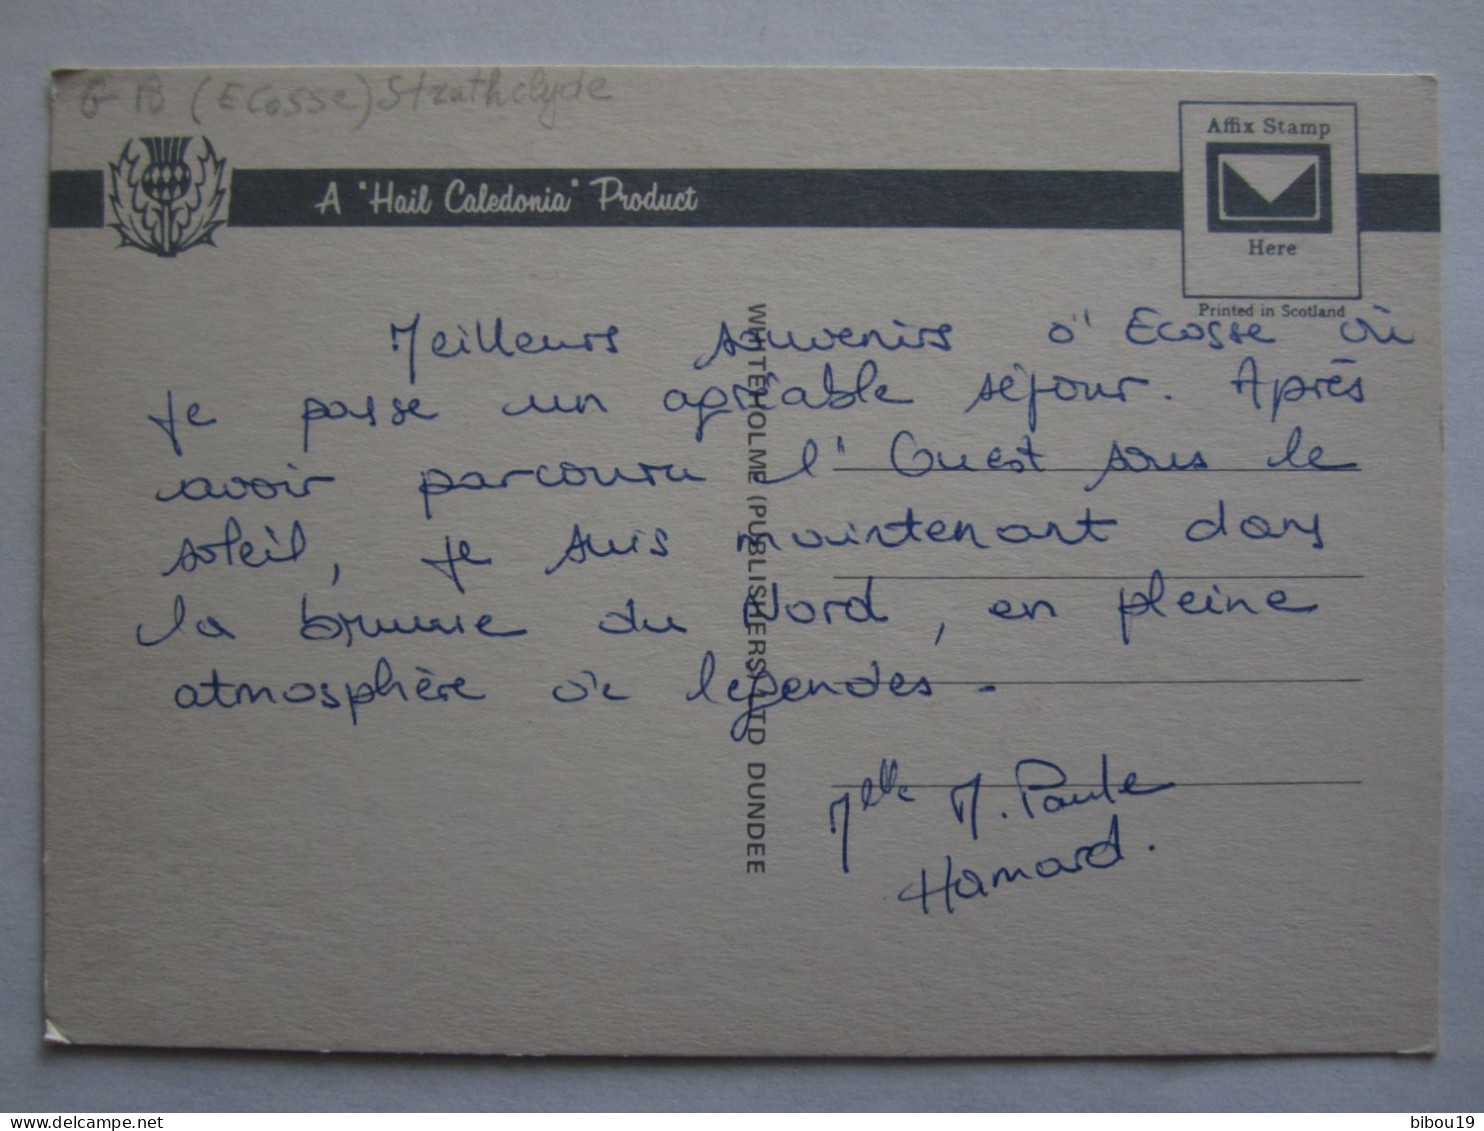 G B (Ecosse) Strathclyde
A "Hail Caledonia" Product
Affix Stamp
Here
Printed in Scotland
Meilleurs souvenirs d'Ecosse où
je passe un agréable séjour. Après
avoir parcouru l'Ouest sous le
soleil, je suis maintenant dans
la brume du Nord, en pleine
atmosphère de légendes.
Melle M. Paule
Hamard.
WHITEHOLME (PUBLISHERS) LTD DUNDEE
delcampe.net
bibou19